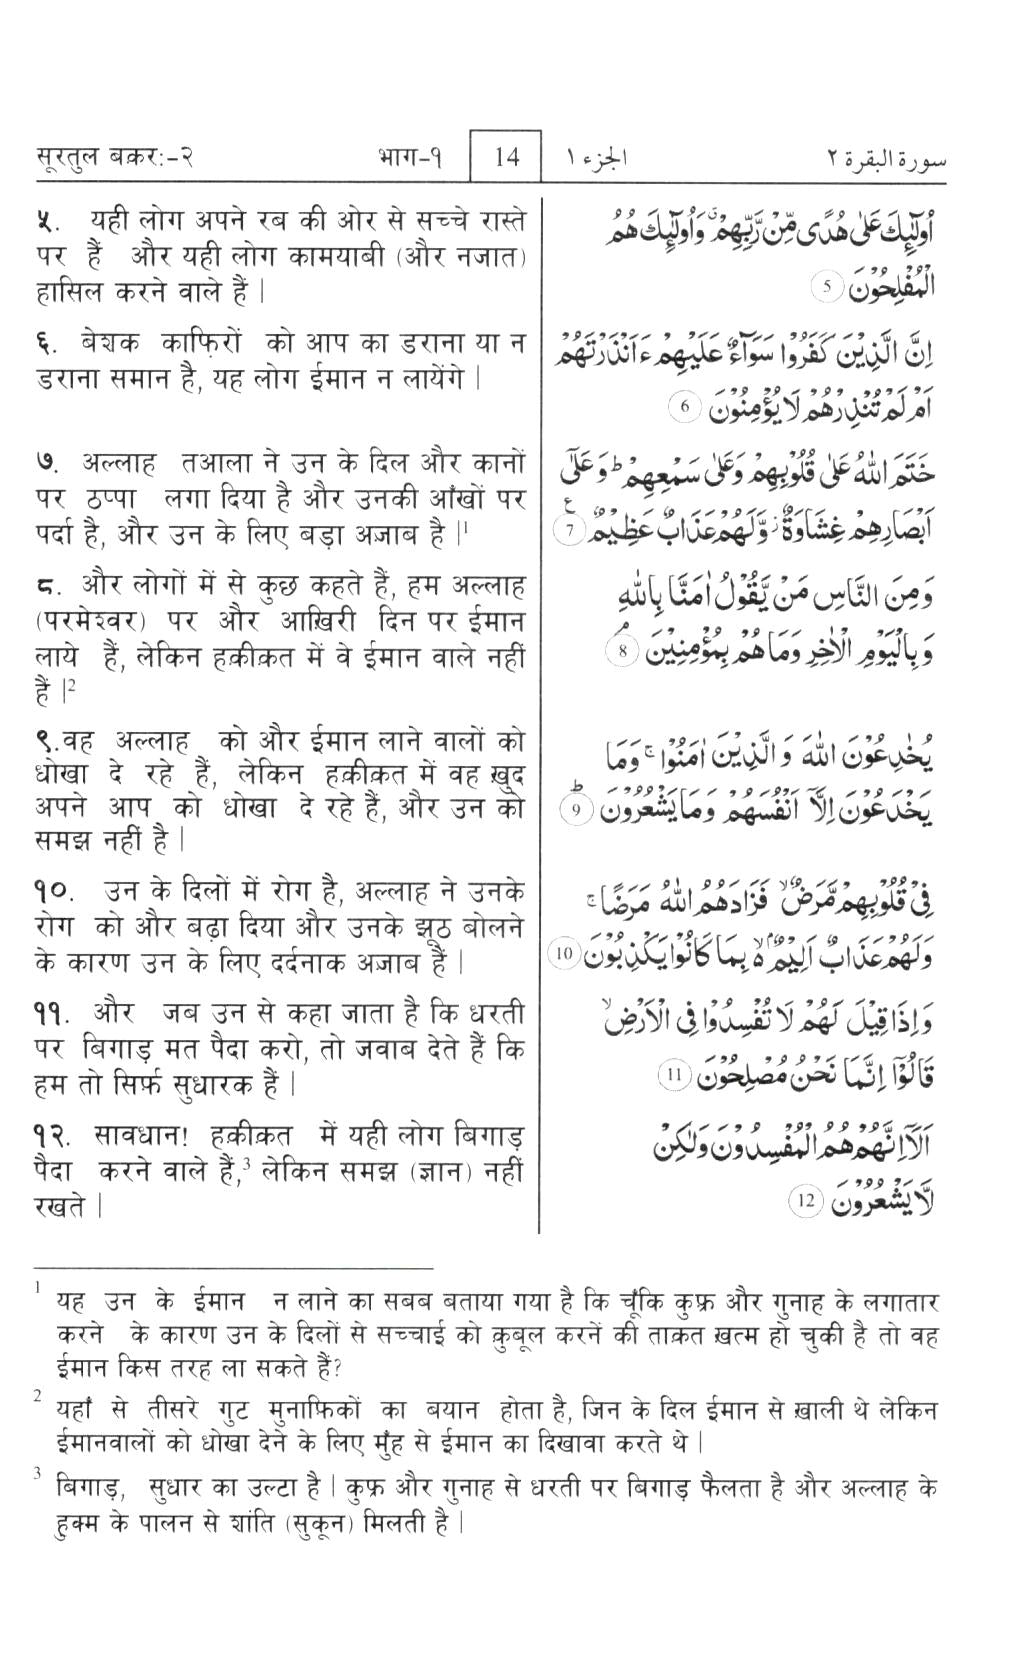 सूरतुल बकर:-२ भाग-१ 14 الجزء ١ سورة البقرة ٢
५. यही लोग अपने रब की ओर से सच्चे रास्ते
पर हैं और यही लोग कामयाबी (और नजात)
हासिल करने वाले हैं |
६. बेशक काफ़िरों को आप का डराना या न
डराना समान है, यह लोग ईमान न लायेंगे |
७. अल्लाह तआला ने उन के दिल और कानों
पर ठप्पा लगा दिया है और उनकी आंखों पर
पर्दा है, और उन के लिए बड़ा अज़ाब है |¹
८. और लोगों में से कुछ कहते हैं, हम अल्लाह
(परमेश्वर) पर और आख़िरी दिन पर ईमान
लाये हैं, लेकिन हक़ीक़त में वे ईमान वाले नहीं
हैं |²
९.वह अल्लाह को और ईमान लाने वालों को
धोखा दे रहे हैं, लेकिन हक़ीक़त में वह ख़ुद
अपने आप को धोखा दे रहे हैं, और उन को
समझ नहीं है |
१०. उन के दिलों में रोग है, अल्लाह ने उनके
रोग को और बढ़ा दिया और उनके झूठ बोलने
के कारण उन के लिए दर्दनाक अज़ाब हैं |
११. और जब उन से कहा जाता है कि धरती
पर बिगाड़ मत पैदा करो, तो जवाब देते हैं कि
हम तो सिर्फ़ सुधारक हैं |
१२. सावधान! हक़ीक़त में यही लोग बिगाड़
पैदा करने वाले हैं,³ लेकिन समझ (ज्ञान) नहीं
रखते |
اُولٰٓئِكَ عَلٰى هُدًى مِّنْ رَّبِّهِمْ ۙ وَاُولٰٓئِكَ هُمُ
الْمُفْلِحُوْنَ 5
اِنَّ الَّذِيْنَ كَفَرُوْا سَوَآءٌ عَلَيْهِمْ ءَاَنْذَرْتَهُمْ
اَمْ لَمْ تُنْذِرْهُمْ لَا يُؤْمِنُوْنَ 6
خَتَمَ اللّٰهُ عَلٰى قُلُوْبِهِمْ وَعَلٰى سَمْعِهِمْ ؕ وَعَلٰٓى
اَبْصَارِهِمْ غِشَاوَةٌ ۫ وَّلَهُمْ عَذَابٌ عَظِيْمٌ 7 ع
وَمِنَ النَّاسِ مَنْ يَّقُوْلُ اٰمَنَّا بِاللّٰهِ
وَبِالْيَوْمِ الْاٰخِرِ وَمَا هُمْ بِمُؤْمِنِيْنَ ۘ 8
يُخٰدِعُوْنَ اللّٰهَ وَالَّذِيْنَ اٰمَنُوْا ۚ وَمَا
يَخْدَعُوْنَ اِلَّآ اَنْفُسَهُمْ وَمَا يَشْعُرُوْنَ ؕ 9
فِىْ قُلُوْبِهِمْ مَّرَضٌ ۙ فَزَادَهُمُ اللّٰهُ مَرَضًا ۚ
وَلَهُمْ عَذَابٌ اَلِيْمٌ ۙ۬ بِمَا كَانُوْا يَكْذِبُوْنَ 10
وَاِذَا قِيْلَ لَهُمْ لَا تُفْسِدُوْا فِى الْاَرْضِ ۙ
قَالُوْٓا اِنَّمَا نَحْنُ مُصْلِحُوْنَ 11
اَلَآ اِنَّهُمْ هُمُ الْمُفْسِدُوْنَ وَلٰكِنْ
لَّا يَشْعُرُوْنَ 12
¹ यह उन के ईमान न लाने का सबब बताया गया है कि चूंकि कुफ़्र और गुनाह के लगातार
करने के कारण उन के दिलों से सच्चाई को क़ुबूल करनें की ताक़त ख़त्म हो चुकी है तो वह
ईमान किस तरह ला सकते हैं?
² यहां से तीसरे गुट मुनाफ़िकों का बयान होता है, जिन के दिल ईमान से ख़ाली थे लेकिन
ईमानवालों को धोखा देने के लिए मुंह से ईमान का दिखावा करते थे |
³ बिगाड़, सुधार का उल्टा है | कुफ़्र और गुनाह से धरती पर बिगाड़ फैलता है और अल्लाह के
हुक्म के पालन से शांति (सुकून) मिलती है |